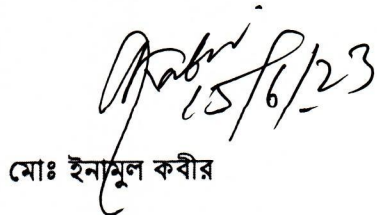 15/6/23
মোঃ ইনামুল কবীর